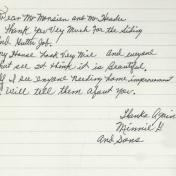 Dear Mr Monsien and Mr Shader
Thank you Vey Much For the Siding
and Gutter Job.
My House Look Very Nice and everyone
that see it think it is Beautiful,
If I see anyone Needing home improvement
I Will tell them about you.
Thanks Again
Minnie G
and Sons